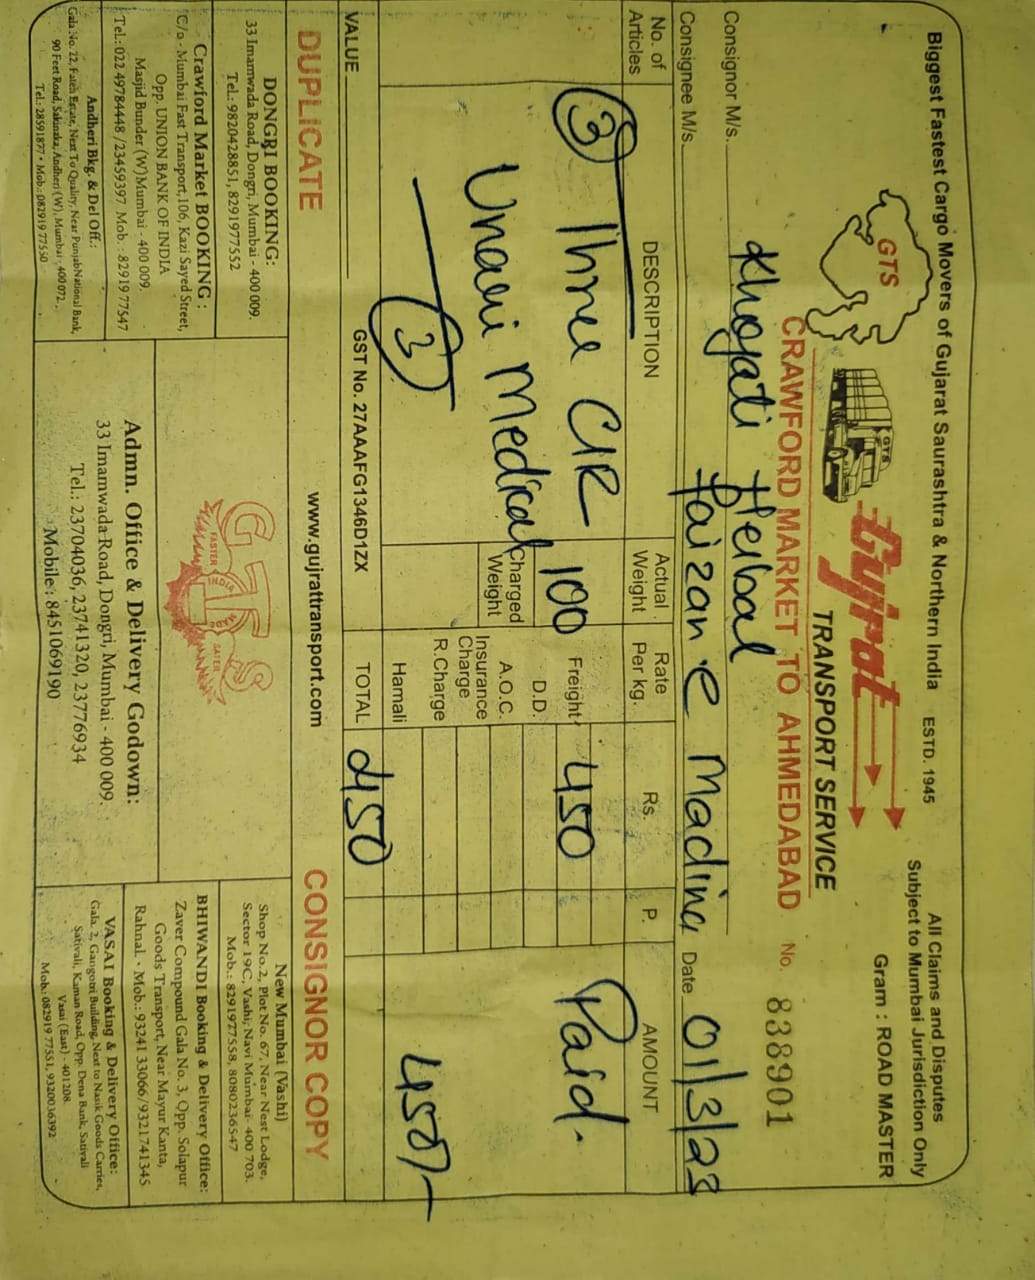 Biggest Fastest Cargo Movers of Gujarat Saurashtra & Northern India ESTD. 1945
All Claims and Disputes
Subject to Mumbai Jurisdiction Only
Gram : ROAD MASTER
GTS
GTS
Gujrat
TRANSPORT SERVICE
CRAWFORD MARKET TO AHMEDABAD No. 838901
Consignor M/s. Khojati Herbal
Consignee M/s. Faizan e Madina Date 01/3/23
No. of Articles
DESCRIPTION
Actual Weight
Rate Per kg.
Rs.
P.
AMOUNT
3 Three C/R 100 Freight 450 Paid.
D.D.
Unani Medical
Charged Weight
A.O.C.
Insurance Charge
R.Charge
3
Hamali
450/-
VALUE
GST No. 27AAAFG1346D1ZX
TOTAL 450
DUPLICATE www.gujrattransport.com CONSIGNOR COPY
DONGRI BOOKING:
33 Imamwada Road, Dongri, Mumbai - 400 009.
Tel.: 9820428851, 8291977552
Crawford Market BOOKING :
C/o - Mumbai Fast Transport,106, Kazi Sayed Street,
Opp. UNION BANK OF INDIA
Masjid Bunder (W)Mumbai - 400 009.
Tel.: 022 49784448 /23459397 Mob. : 82919 77547
Andheri Bkg. & Del Off.:
Gala No. 22, Fateh Estate, Next To Quality, Near Punjab National Bank,
90 Feet Road, Sakinaka, Andheri (W), Mumbai - 400 072.
Tel.: 28591877 • Mob.: 082919 77550
GTS
FASTER
INDIA
SAFER
Admn. Office & Delivery Godown:
33 Imamwada Road, Dongri, Mumbai - 400 009.
Tel.: 23704036, 23741320, 23776934
Mobile : 8451069190
New Mumbai (Vashi)
Shop No.2, Plot No. 67, Near Nest Lodge,
Sector 19C, Vashi, Navi Mumbai- 400 703.
Mob.: 8291977558, 8080236547
BHIWANDI Booking & Delivery Office:
Zaver Compound Gala No. 3, Opp. Solapur
Goods Transport, Near Mayur Kanta,
Rahnal. - Mob.: 93241 33066/9321741345
VASAI Booking & Delivery Office:
Gala. 2, Gangotri Building, Next to Nasik Goods Carries,
Sativali, Kaman Road, Opp. Dena Bank, Sativali
Vasai (East) - 401208.
Mob.: 082919 77551, 9320036392